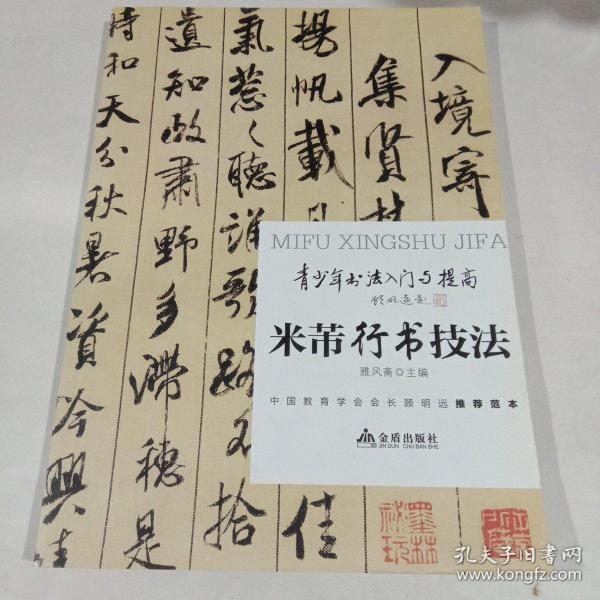 入境寄
集贤林
揚帆載月
氣葱々聽誰歌
路不拾
遺知政肅野多滯穗是
時和天分秋暑資吟興
佳
MIFU XINGSHU JIFA
青少年书法入门与提高
顾明远题
米芾行书技法
雅风斋○主编
中国教育学会会长顾明远推荐范本
金盾出版社
JIN DUN CHU BAN SHE
墨林
秘玩
孔夫子旧书网
www.kongfz.com